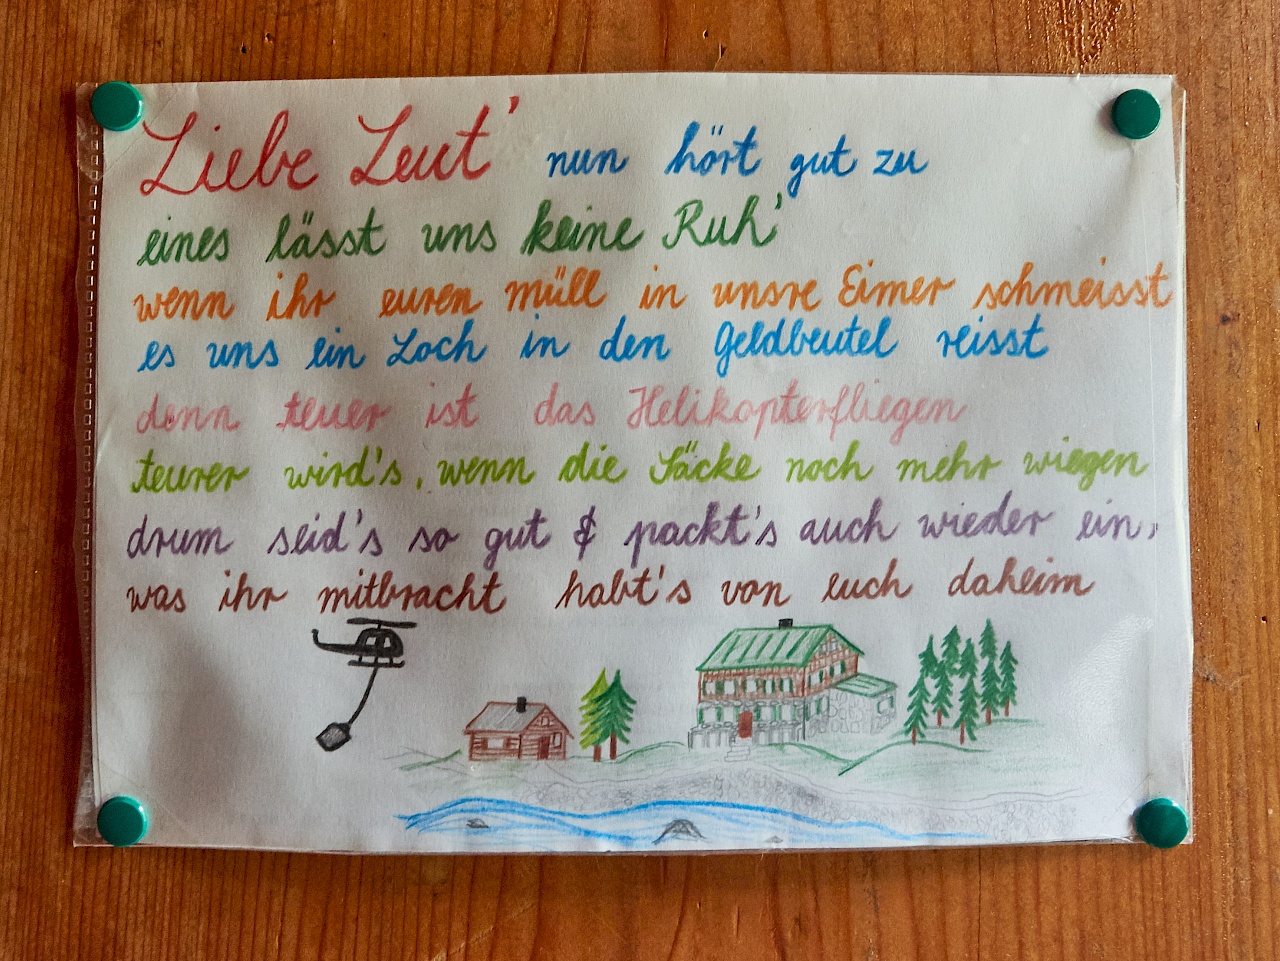 Liebe Leut' nun hört gut zu
eines lässt uns keine Ruh'
wenn ihr euren müll in unsre Eimer schmeisst
es uns ein Loch in den Geldbeutel reisst
denn teuer ist das Helikopterfliegen
teurer wird's, wenn die Säcke noch mehr wiegen
drum seid's so gut & packt's auch wieder ein,
was ihr mitbracht habt's von euch daheim